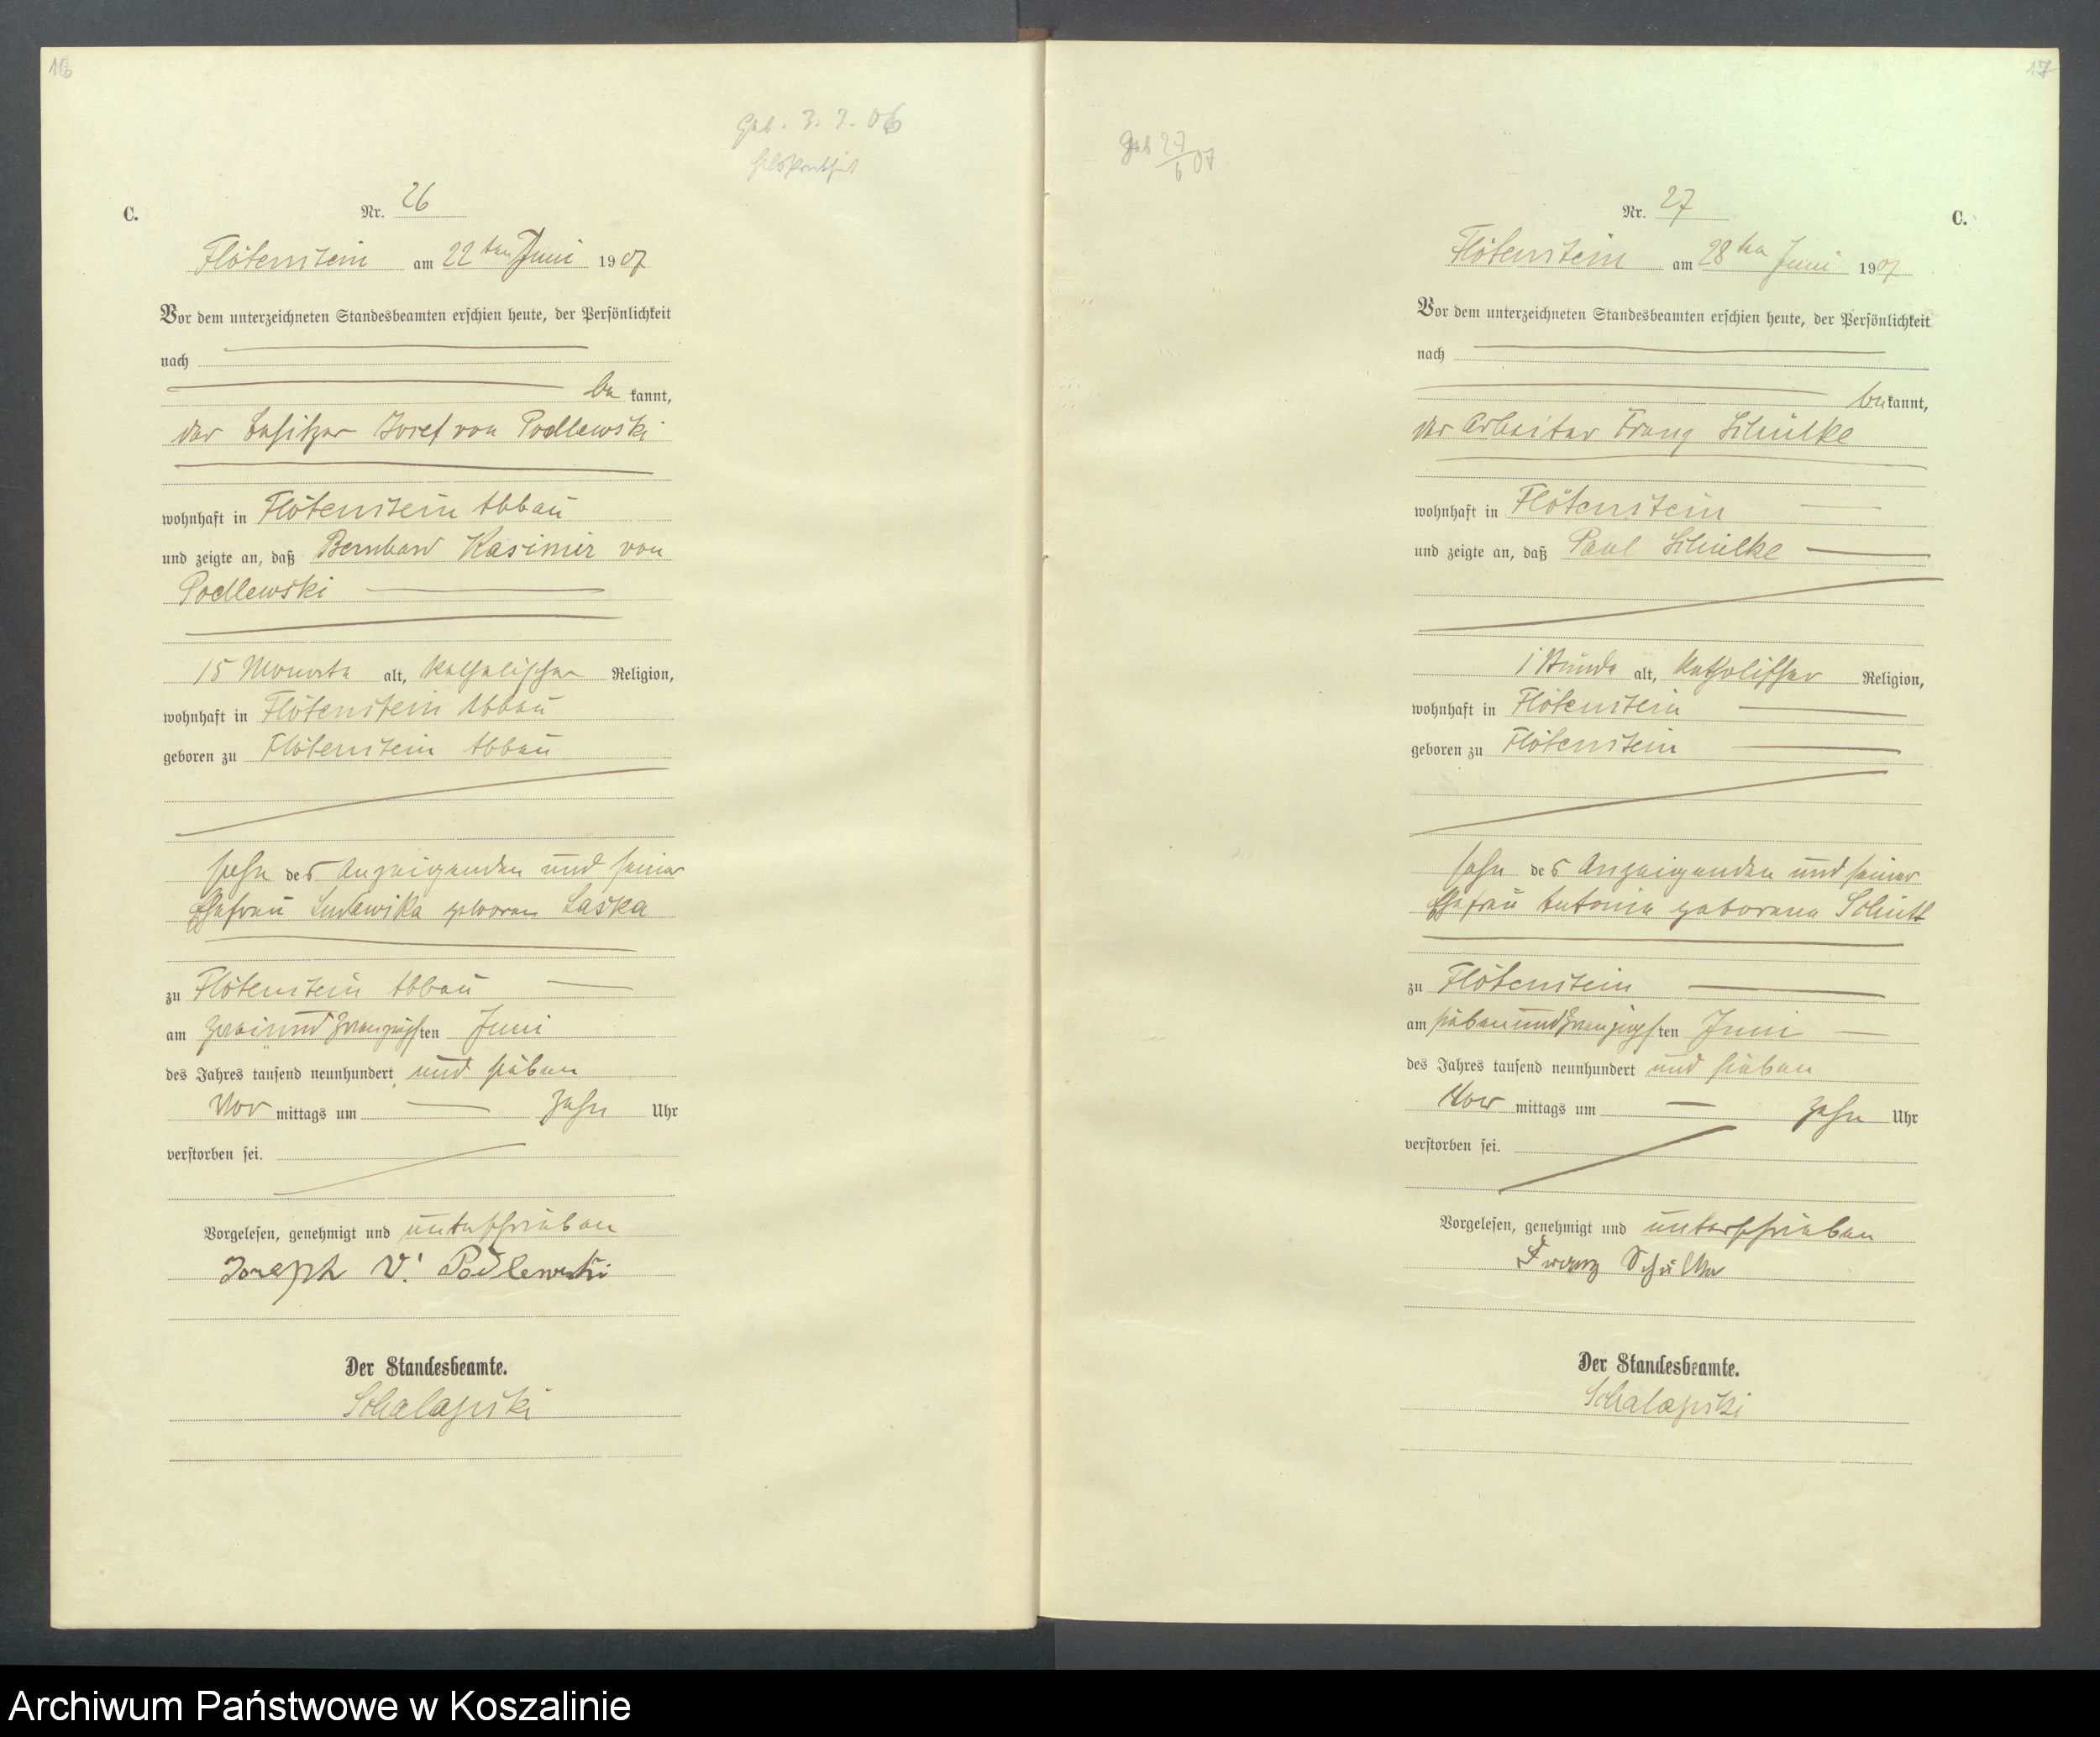 16
Geb. 3.3.06
C.
Nr. 26
Flötenstein am 22ten Juni 1907
Vor dem unterzeichneten Standesbeamten erschien heute, der Persönlichkeit
nach
be kannt,
der Besitzer Josef von Podlewski
wohnhaft in Flötenstein Abbau
und zeigte an, daß Bernhard Kasimir von
Podlewski
15 Monate alt, katholischer Religion,
wohnhaft in Flötenstein Abbau
geboren zu Flötenstein Abbau
Sohn des Anzeigenden und seiner
Ehefrau Ludowika geborene Laska
zu Flötenstein Abbau
am zweiundzwanzigsten Juni
des Jahres tausend neunhundert und sieben
Vor mittags um zehn Uhr
verstorben sei.
Vorgelesen, genehmigt und unterschrieben
Joseph v. Podlewski
Der Standesbeamte.
Schalapski
17
Geb 27/6 07
Nr. 27
C.
Flötenstein am 28ten Juni 1907
Vor dem unterzeichneten Standesbeamten erschien heute, der Persönlichkeit
nach
be kannt,
der Arbeiter Franz Schülke
wohnhaft in Flötenstein
und zeigte an, daß Paul Schülke
1 Stunde alt, katholischer Religion,
wohnhaft in Flötenstein
geboren zu Flötenstein
Sohn des Anzeigenden und seiner
Ehefrau Antonie geborene Schütt
zu Flötenstein
am siebenundzwanzigsten Juni
des Jahres tausend neunhundert und sieben
Vor mittags um zehn Uhr
verstorben sei.
Vorgelesen, genehmigt und unterschrieben
Franz Schülke
Der Standesbeamte.
Schalapski
Archiwum Państwowe w Koszalinie